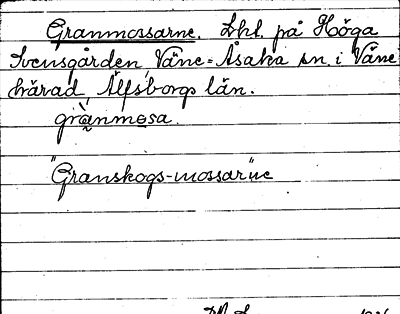 Granmossarne. Lokl. på Höga
Svensgården, Väne-Åsaka sn. i Väne
härad Älfsborgs län.
grànmosa.
"Granskogs-mossarne"